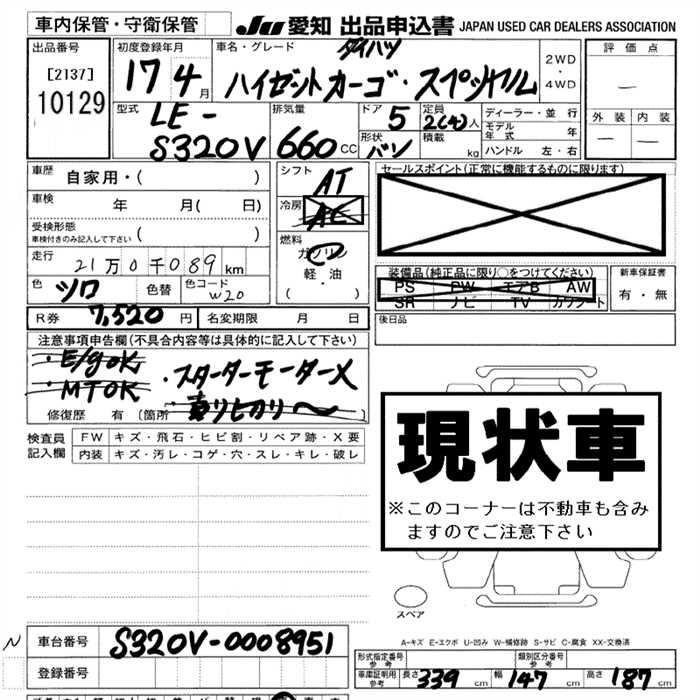 車内保管・守衛保管
JU 愛知 出品申込書 JAPAN USED CAR DEALERS ASSOCIATION
出品番号
[2137]
10129
初度登録年月
17 4月
車名・グレード
ダイハツ
ハイゼットカーゴ・スペシャル
2WD
・
4WD
評価点
—
外装 内装
— —
型式
LE-
S320V
排気量
660 CC
ドア 5
形状
バン
定員
2(4)人
積載
kg
ディーラー・並行
モデル年式 年
ハンドル 左・右
車歴 自家用・( )
車検 年 月( 日)
受検形態
車検付きのみ記入して下さい ( )
走行 21万0千089km
色 シロ 色替 色コード W20
シフト AT
冷房 AC
燃料 ガソリン
軽・油
( )
セールスポイント(正常に機能するものに限ります)
装備品(純正品に限り○をつけてください)
PS PW エアB AW
SR ナビ TV カワシート
新車保証書
有・無
R券 7,520円 名変期限 月 日
後日品
注意事項申告欄(不具合内容等は具体的に記入して下さい)
・E/gOK
・MTOK
・スターターモーター×
修復歴 有 (箇所
検査員記入欄
FW キズ・飛石・ヒビ割・リペア跡・X要
内装 キズ・汚レ・コゲ・穴・スレ・キレ・破レ
現状車
※このコーナーは不動車も含み
ますのでご注意下さい
スペア
A-キズ E-エクボ U-凹み W-補修跡 S-サビ C-腐食 XX-交換済
N
車台番号 S320V-0008951
登録番号
形式指定番号
参考
類別区分番号
参考
車庫証明用
参考
長さ 339cm 幅 147cm 高さ 187cm